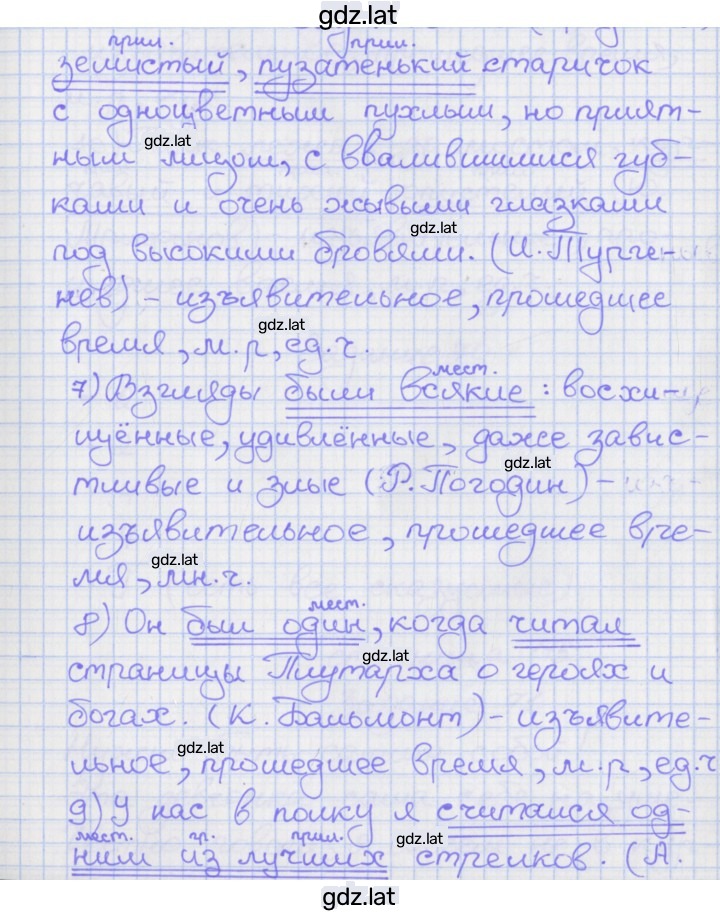 gdz.lat
прил. прил.
земистый, пузатенький старичок
с одноцветным пухлым, но прият-
gdz.lat
ным лицом, с ввалившимися губ-
ками и очень живыми глазками
gdz.lat
под высокими бровями. (И. Турге-
нев) – изъявительное, прошедшее
gdz.lat
время, м.р, ед.ч.
мест.
7) Взгляды были всякие: восхи-
щённые, удивлённые, даже завис-
gdz.lat
тливые и злые (Р. Погодин) –
изъявительное, прошедшее вре-
gdz.lat
мя, мн.ч.
мест.
8) Он был один, когда читал
gdz.lat
страницы Плутарха о героях и
богах. (К. Бальмонт) – изъявите-
gdz.lat
льное, прошедшее время, м.р, ед.ч
9) У нас в полку я считался од-
мест. пр. прил. gdz.lat
ним из лучших стрелков. (А.
gdz.lat